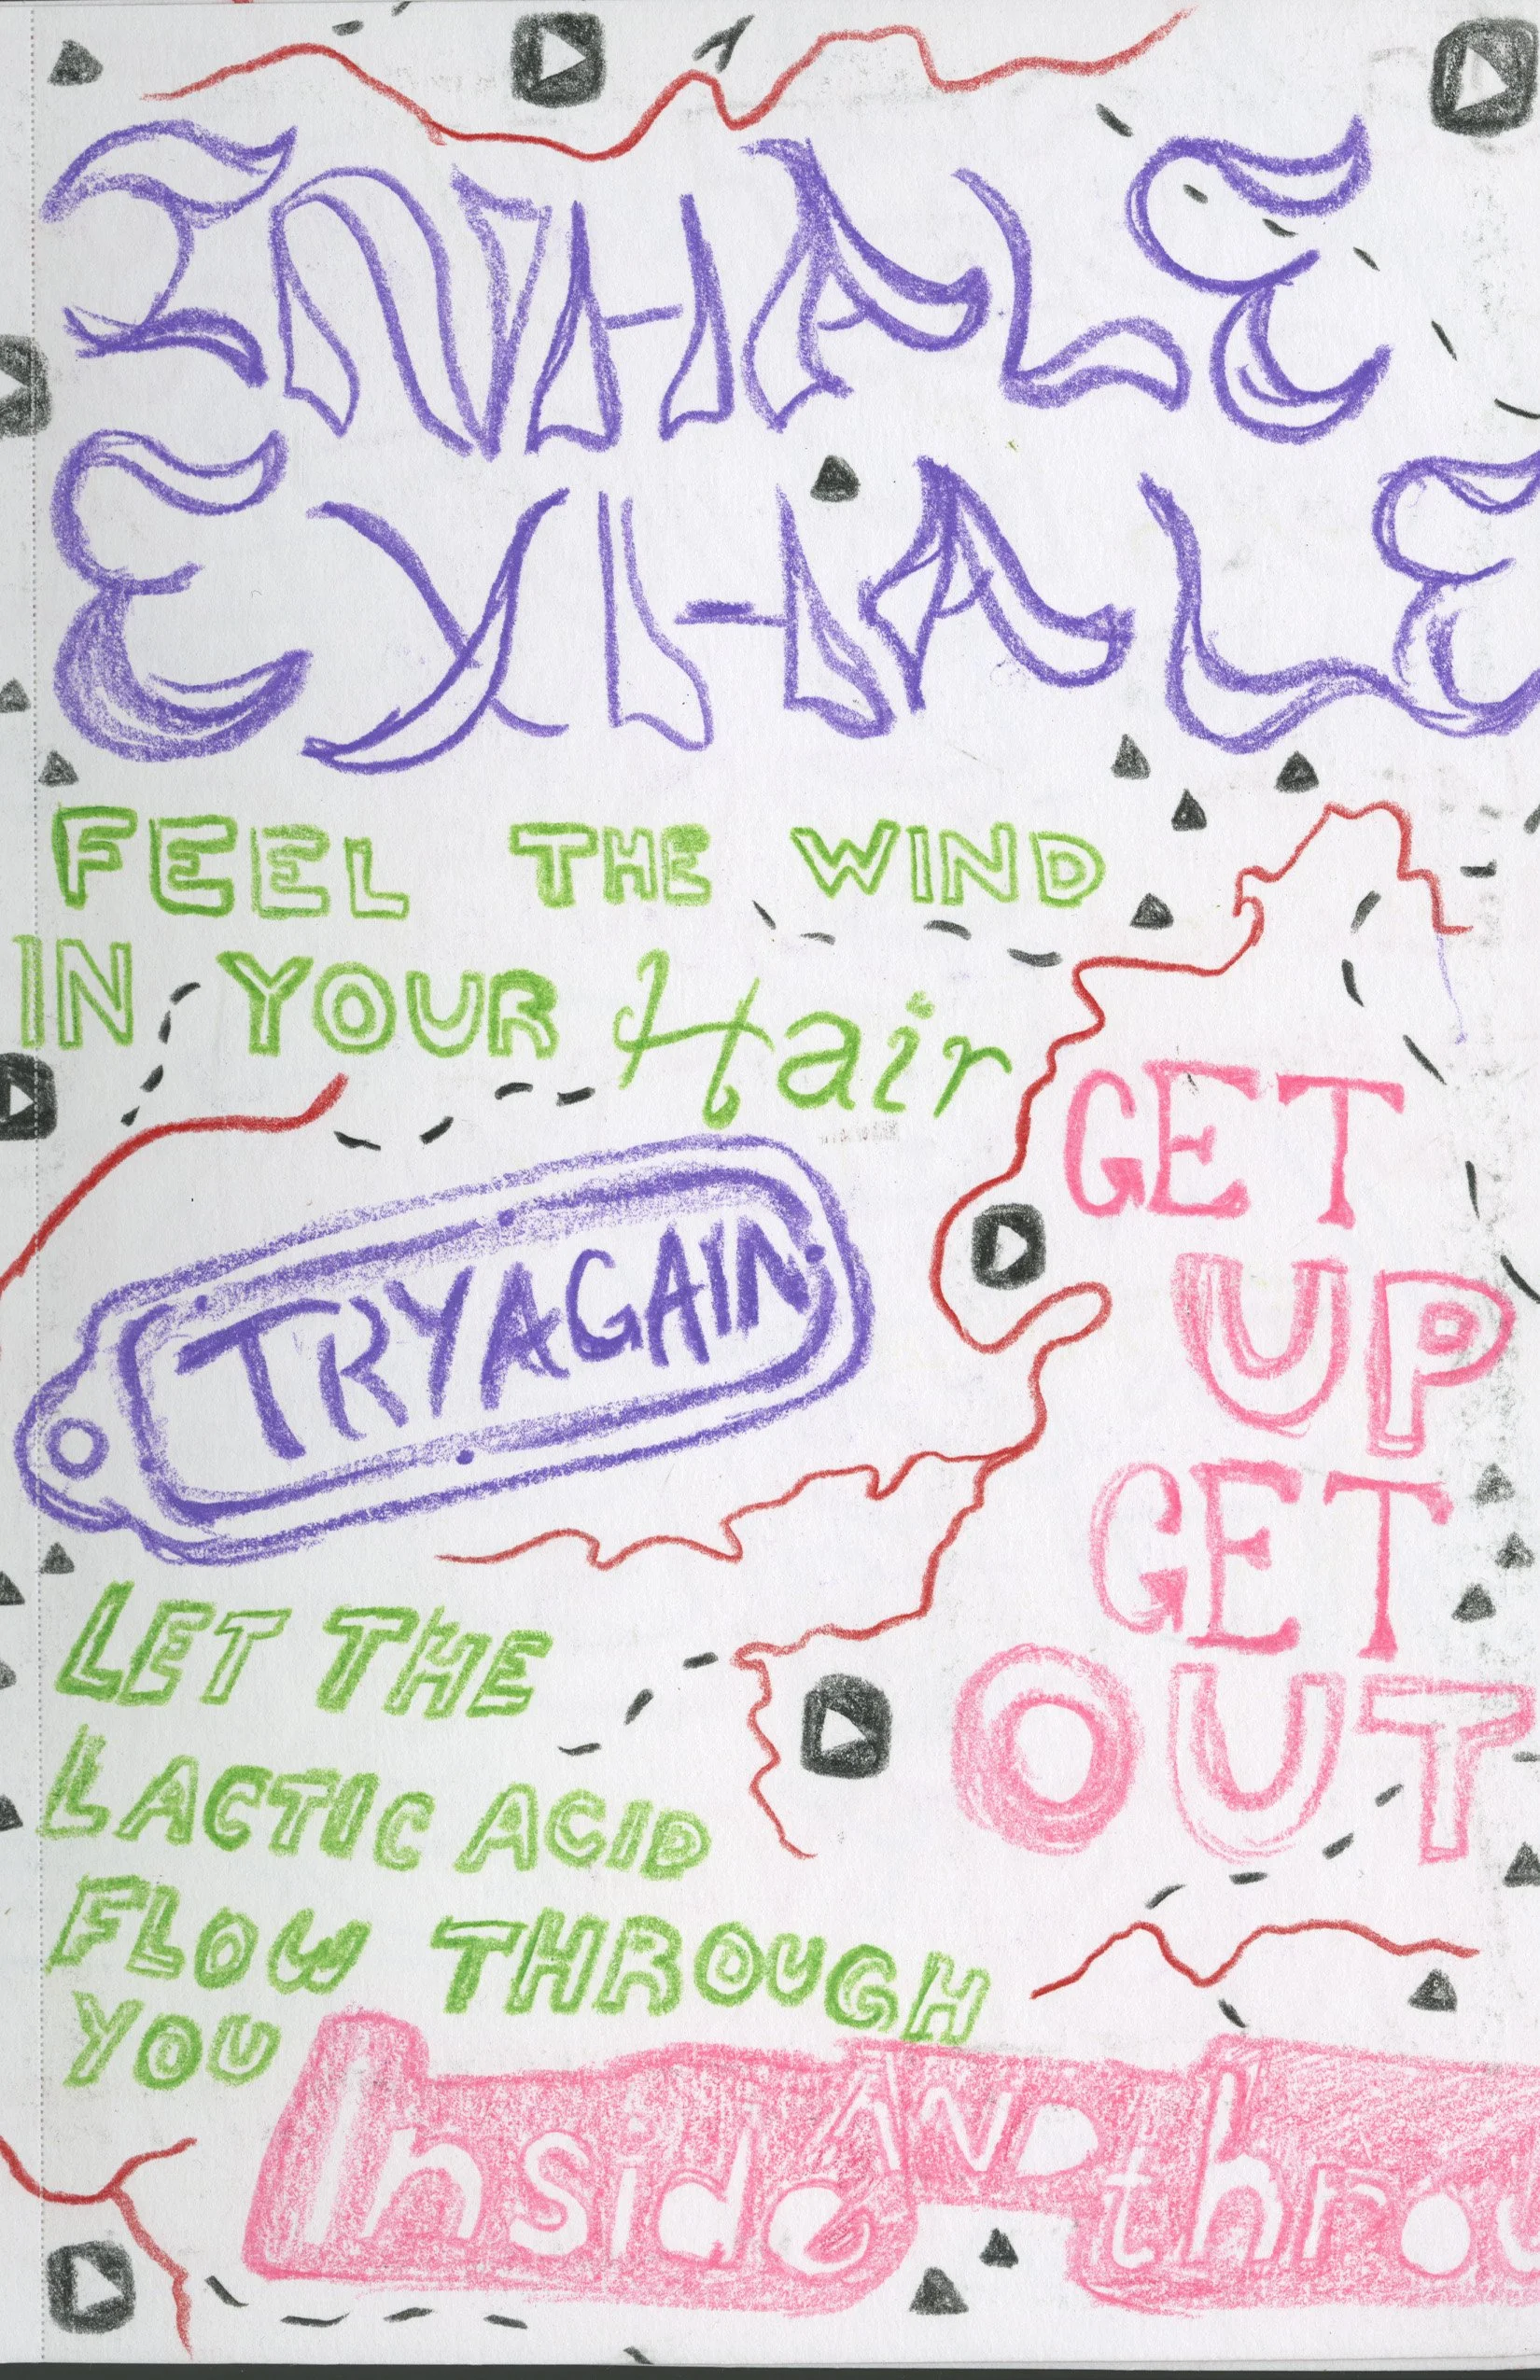 INHALE
EXHALE
FEEL THE WIND
IN YOUR Hair
TRY AGAIN
GET
UP
GET
OUT
LET THE
LACTIC ACID
FLOW THROUGH
YOU
Inside AND throu